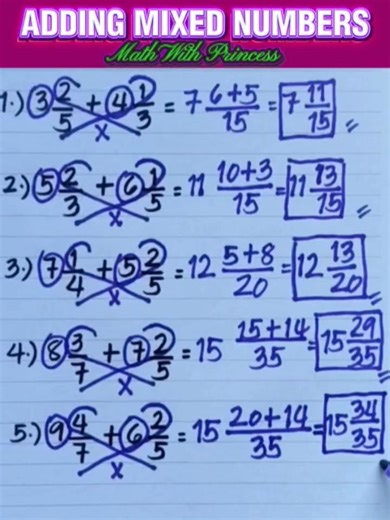 ADDING MIXED NUMBERS
Math With Princess
1.) 3 2/5 + 4 1/3 = 7 6+5/15 = 7 11/15
x
2.) 5 2/3 + 6 1/5 = 11 10+3/15 = 11 13/15
x
3.) 7 1/4 + 5 2/5 = 12 5+8/20 = 12 13/20
x
4.) 8 3/7 + 7 2/5 = 15 15+14/35 = 15 29/35
x
5.) 9 4/7 + 6 2/5 = 15 20+14/35 = 15 34/35
x